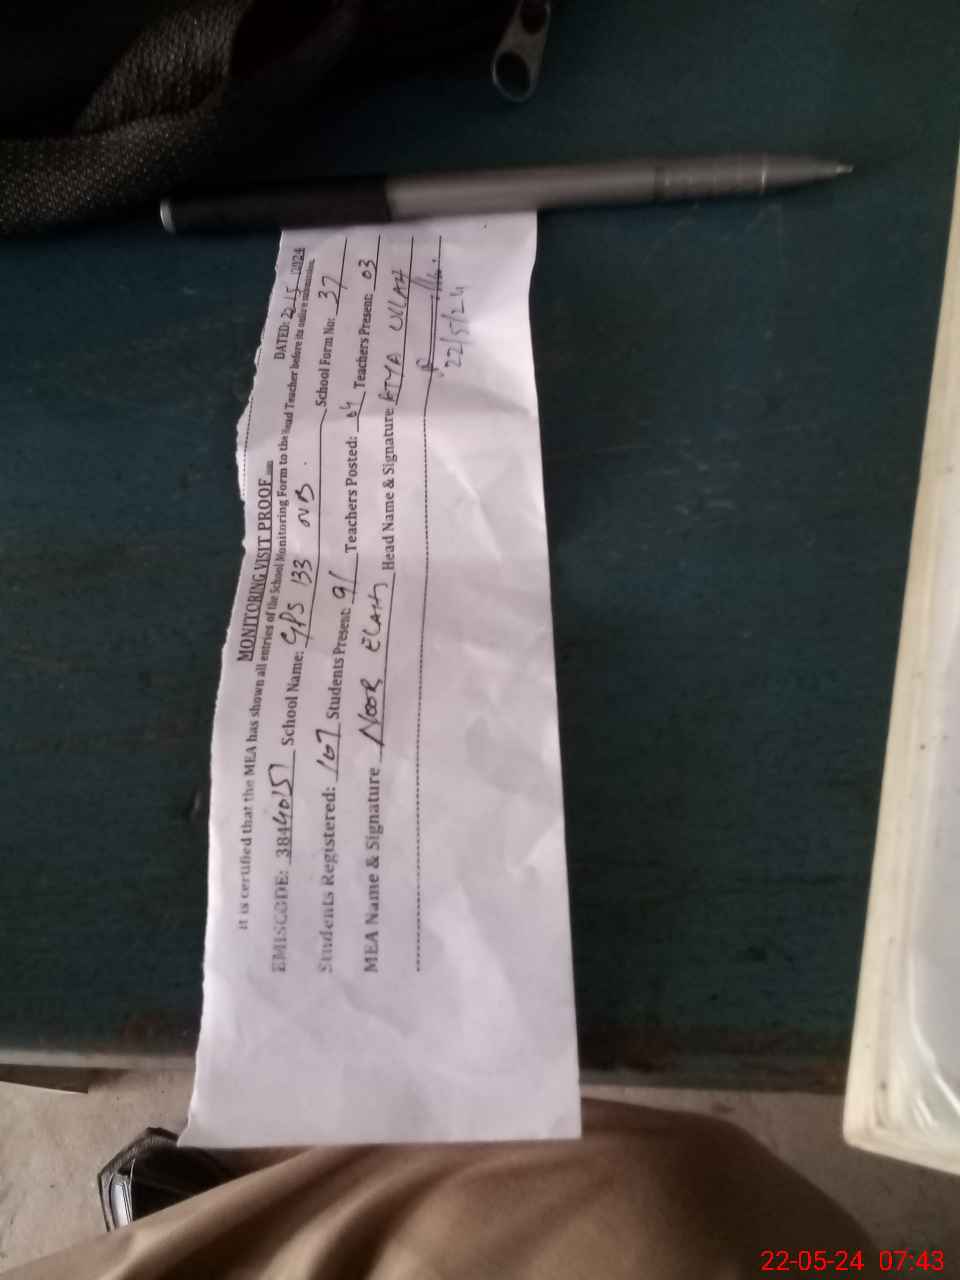 MONITORING VISIT PROOF
DATED: 22/5/2024
It is certified that the MEA has shown all entries of the School Monitoring Form to the Head Teacher before its online submission.
EMISCODE: 38440157 School Name: GPS 133 NB School Form No: 37
Students Registered: 167 Students Present: 91 Teachers Posted: 04 Teachers Present: 03
MEA Name & Signature NOOR ELAHI Head Name & Signature ULLAH
22/5/24
22-05-24 07:43